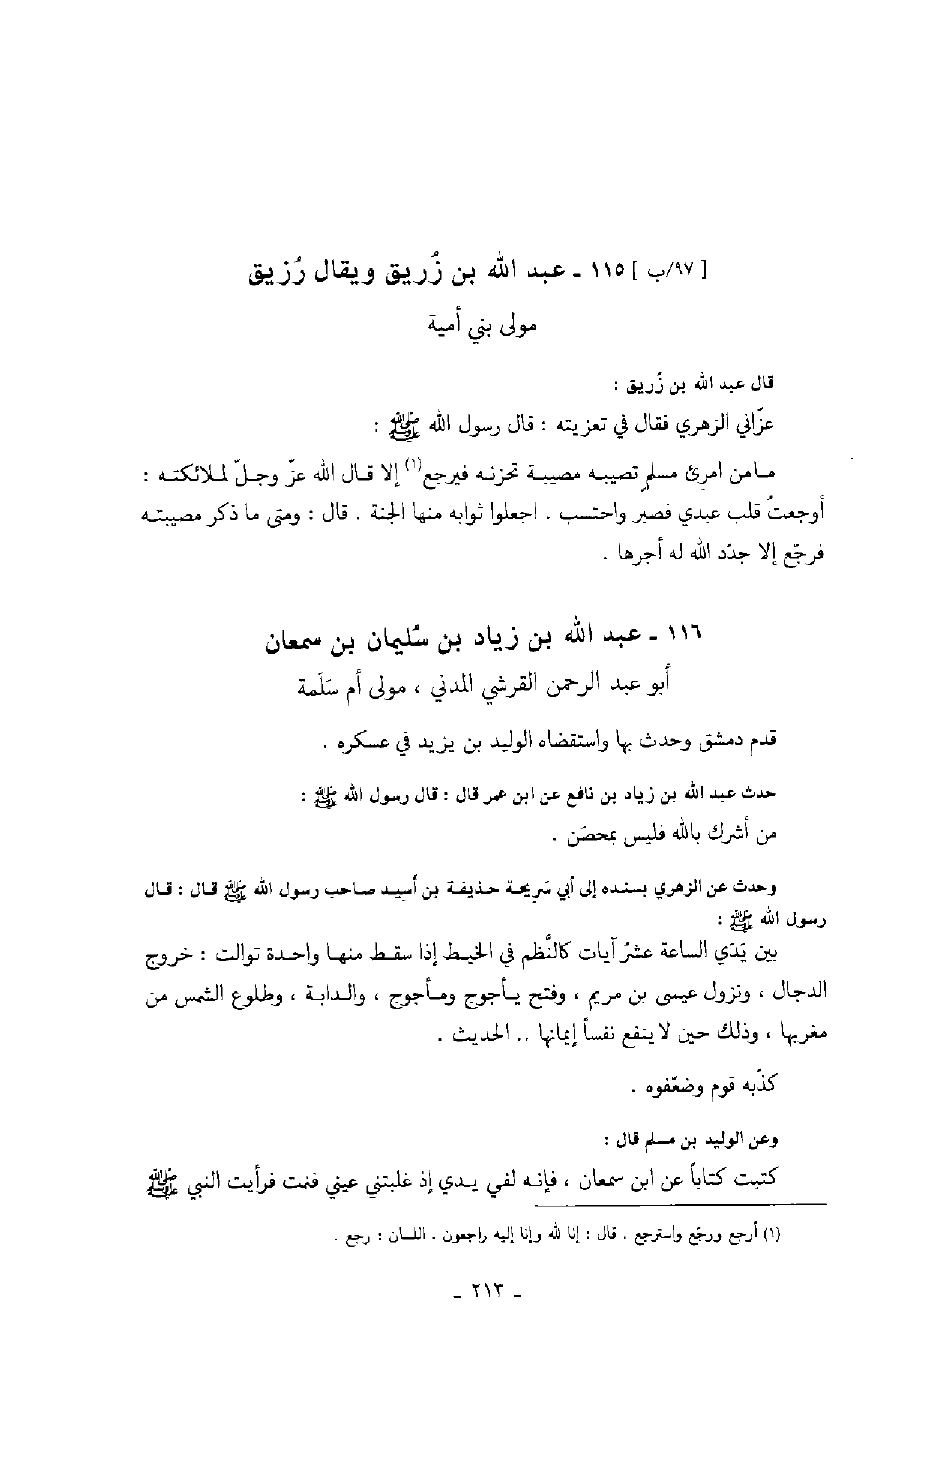 [ ٩٧/ب ] ١١٥ ـ عبد الله بن زُريق ويقال رُزيق
مولى بني أمية
قال عبد الله بن زُريق :
عزّاني الزهري فقال في تعزيته : قال رسول الله ﷺ :
مامن امرئ مسلمٍ تصيبه مصيبة تحزنه فيرجع(١) إلا قال الله عزّ وجلّ لملائكته :
أوجعتُ قلب عبدي فصبر واحتسب . اجعلوا ثوابه منها الجنة . قال : ومتى ما ذكر مصيبته
فرجّع إلا جدّد الله له أجرها .
١١٦ ـ عبد الله بن زياد بن سُليمان بن سمعان
أبو عبد الرحمن القرشي المدني ، مولى أم سَلَمة
قدم دمشق وحدث بها واستقضاه الوليد بن يزيد في عسكره .
حدث عبد الله بن زياد بن نافع عن ابن عمر قال : قال رسول الله ﷺ :
من أشرك بالله فليس بمحصَن .
وحدث عن الزهري بسنده إلى أبي سَريحة حذيفة بن أسيد صاحب رسول الله ﷺ قال : قال
رسول الله ﷺ :
بين يَدَي الساعة عشرُ آيات كالنَّظم في الخيط إذا سقط منها واحدة توالت : خروج
الدجال ، ونزول عيسى بن مريم ، وفتح يأجوج ومأجوج ، والدابة ، وطلوع الشمس من
مغربها ، وذلك حين لا ينفع نفساً إيمانها .. الحديث .
كذّبه قوم وضعّفوه .
وعن الوليد بن مسلم قال :
كتبت كتاباً عن ابن سمعان ، فإنه لفي يدي إذ غلبتني عيني فنمت فرأيت النبي ﷺ
(١) أرجع ورجّع واسترجع . قال : إنا لله وإنا إليه راجعون . اللسان : رجع .
ـ ٢١٣ ـ